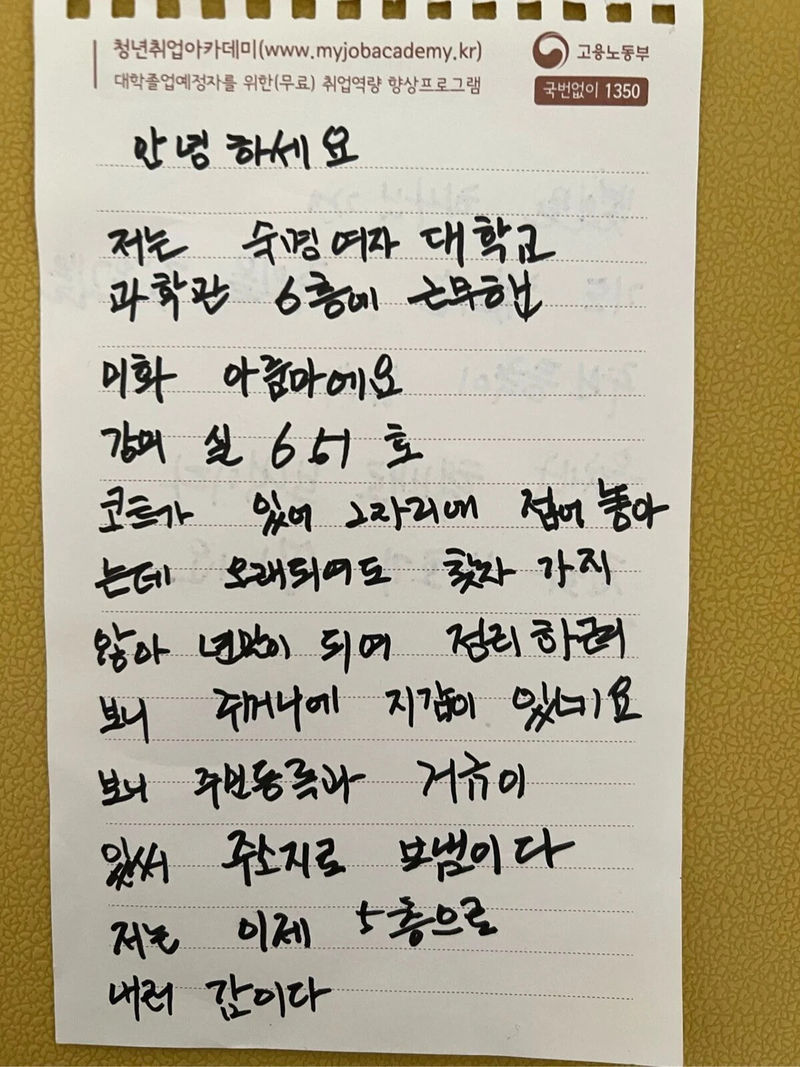 청년취업아카데미(www.myjobacademy.kr)
대학졸업예정자를 위한(무료) 취업역량 향상프로그램
고용노동부
국번없이 1350
안녕하세요
저는 숙명여자 대학교
과학관 6층에 근무합
미화 아줌마에요
강의 실 651 호
코트가 있어 그자리에 접어 놓아
는데 오래되여도 찾자 가지
않아 년말이 되여 정리하
보니 주머니에 지갑이 있느네요
보니 주민등록과 거
있써 주소지로 보냄이다
저는 이제 5층으로
내려 감이다